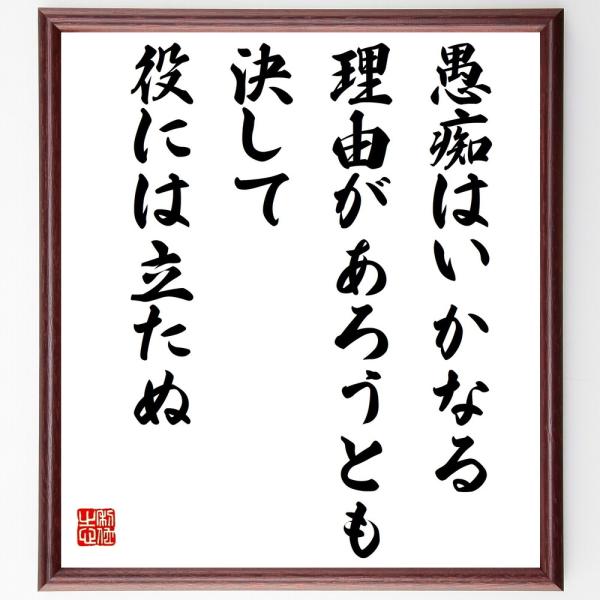 愚痴はいかなる
理由があろうとも
決して
役には立たぬ